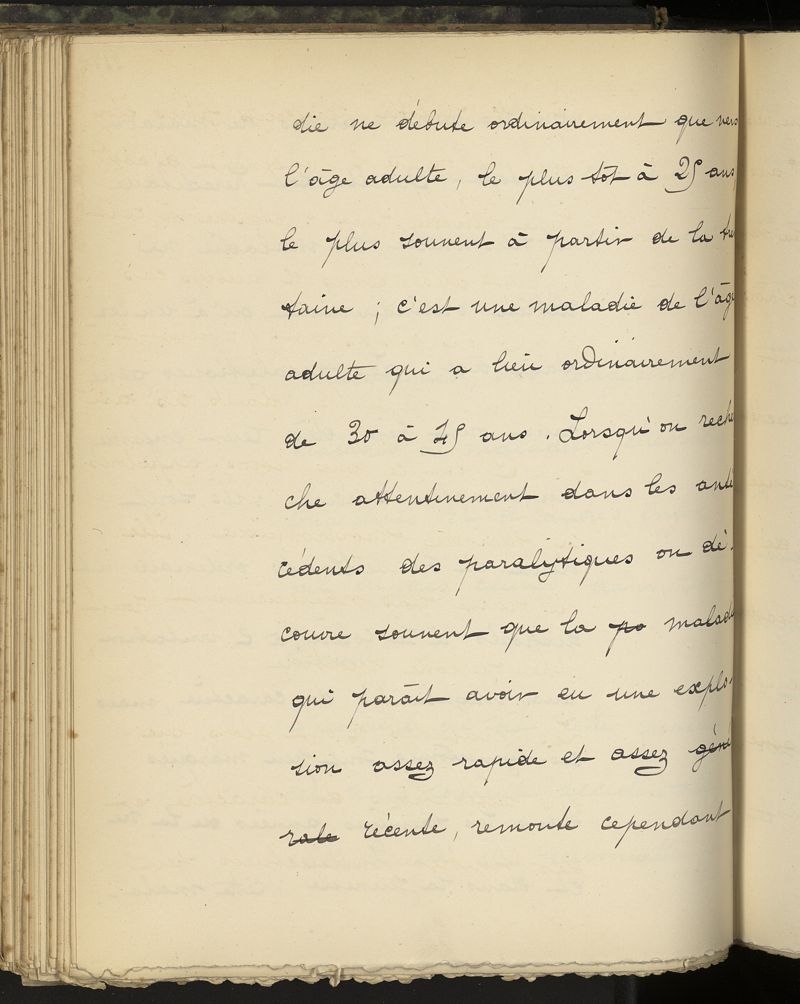 die ne débute ordinairement que vers
l'âge adulte, le plus tôt à 25 ans,
le plus souvent à partir de la tren
taine ; c'est une maladie de l'âge
adulte qui a lieu ordinairement
de 30 à 45 ans. Lorsqu'on recher
che attentivement dans les anté
cédents des paralytiques on dé-
couvre souvent que la pa maladie
qui paraît avoir eu une explo-
sion assez rapide et assez géné
rale récente, remonte cependant